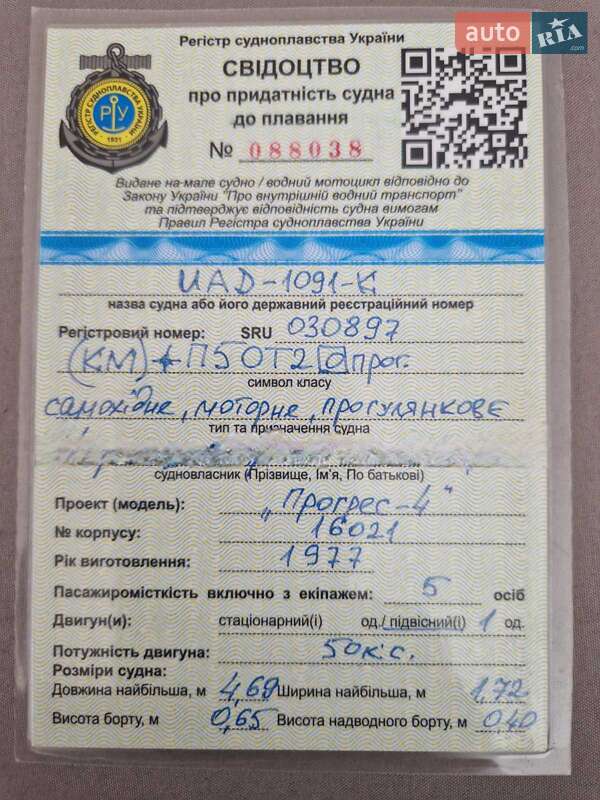 auto RIA.com
Регістр судноплавства України
СВІДОЦТВО
про придатність судна
до плавання
№ 088038
РЕГІСТР СУДНОПЛАВСТВА УКРАЇНИ
РУ
1931
Видане на мале судно / водний мотоцикл відповідно до
Закону України "Про внутрішній водний транспорт"
та підтверджує відповідність судна вимогам
Правил Регістра судноплавства України
UAD-1091-К
назва судна або його державний реєстраційний номер
Регістровий номер: SRU 030897
(КМ) П5 ОТ2 прог.
символ класу
самохідне, моторне, прогулянкове
тип та призначення судна
судновласник (Прізвище, Ім'я, По батькові)
Проект (модель): „Прогрес-4"
№ корпусу: 16021
Рік виготовлення: 1977
Пасажиромісткість включно з екіпажем: 5 осіб
Двигун(и): стаціонарний(і) од./ підвісний(і) 1 од.
Потужність двигуна: 50к.с.
Розміри судна:
Довжина найбільша, м 4,69 Ширина найбільша, м 1,72
Висота борту, м 0,65 Висота надводного борту, м 0,40